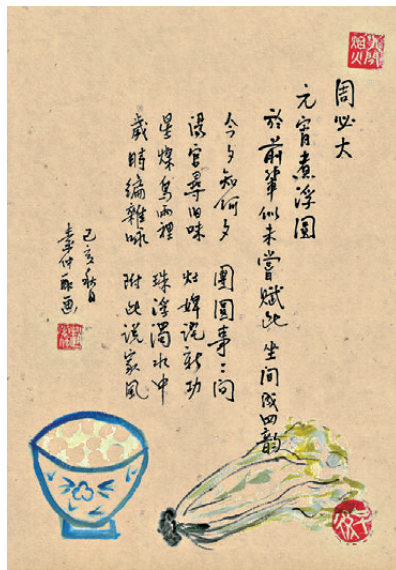 人間烟火
周必大
元宵煮浮圓
於前輩似未嘗賦此 坐間成四韵
今夕知何夕 團圓事〻同
湯官尋旧味 灶婢詫新功
星燦烏雲裡 珠浮濁水中
歲時編雜咏 附此說家風
己亥秋日
仲 画